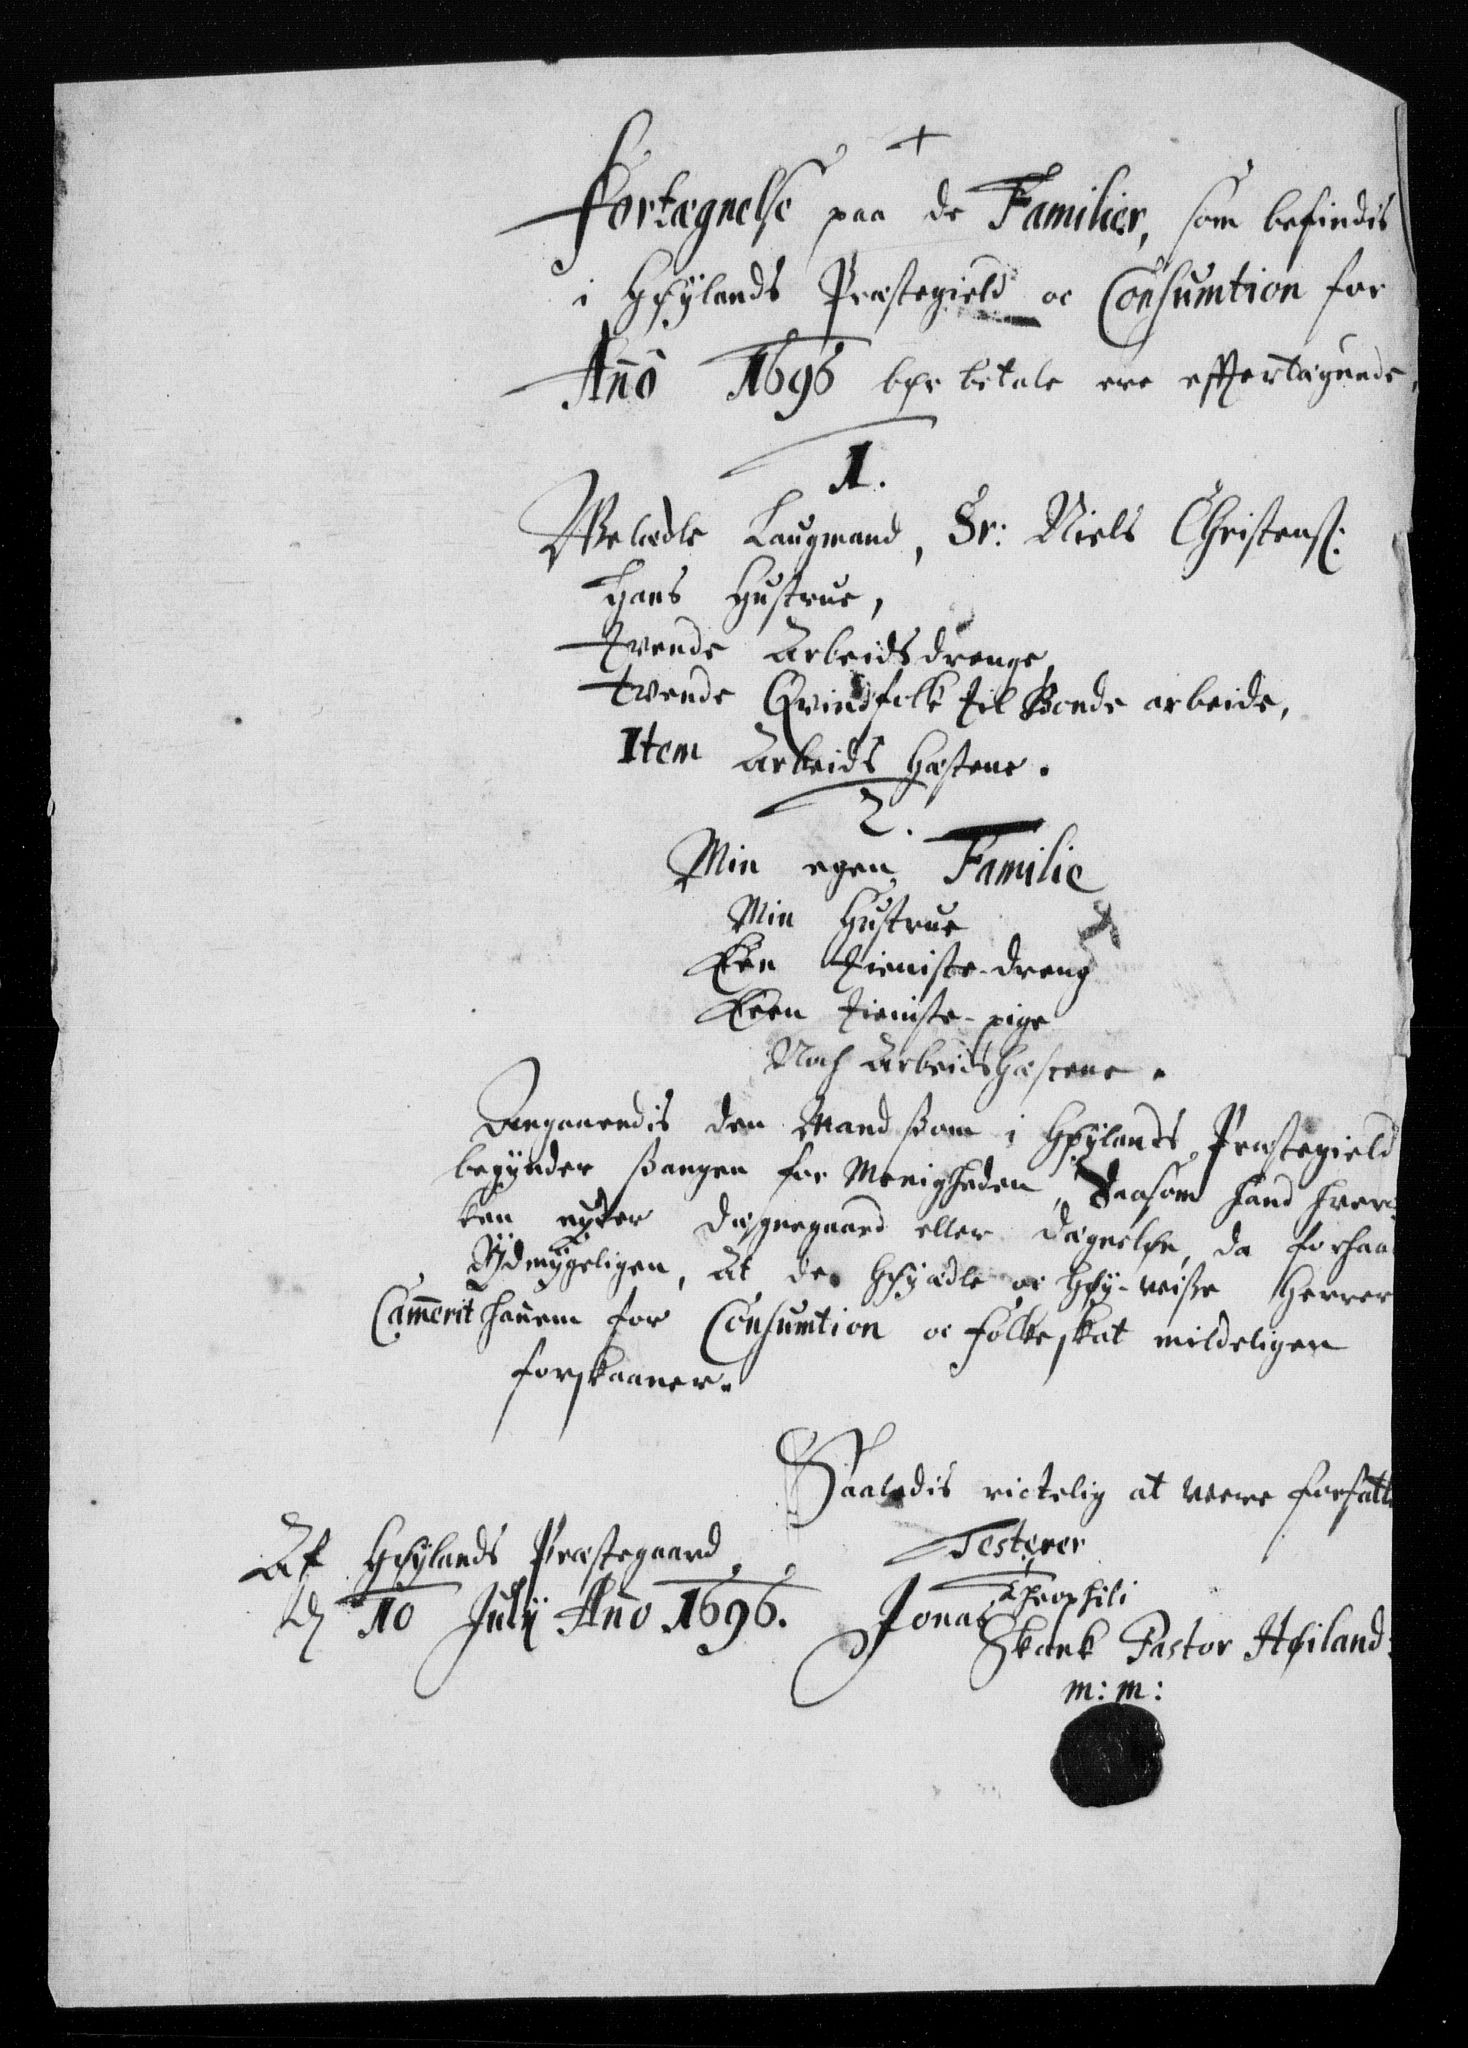 +
Fortægnelse paa de Familier, som befindis
i Høylands Præstegield oc Consumtion for
Año 1696 bør betale ere effterfølgende
1.
Welædle Laugmand, Sr: Niels Christens:
Hans Hustrue,
Tvende Arbeidsdrenge,
Tvende Qvindfolk til Bonde arbeide,
Item Arbeids Hæstene.
2.
Min egen Familie
Min Hustrue
Een Tieniste-dreng
Een Tieniste-pige
Noch Arbeidshæstene.
Angaaendis den Mand ßom i Høylands Præstegield
begynder Sangen for Menigheden, Saasom hand hver-
ken nyder Dægnegaard eller Dægneløn, da forhaa
Ydmygeligen, At de Høyædle oc Høy-viiße Herrer
Camerit hannem for Consumtion oc Folkeskat mildeligen
forskaaner.
Saaledis rictelig at være forfatt
Testerer
Af Høylands Præstegaard
d 10 July Año 1696.
Jonas Theophili
Skank Pastor Høiland:
m: m: